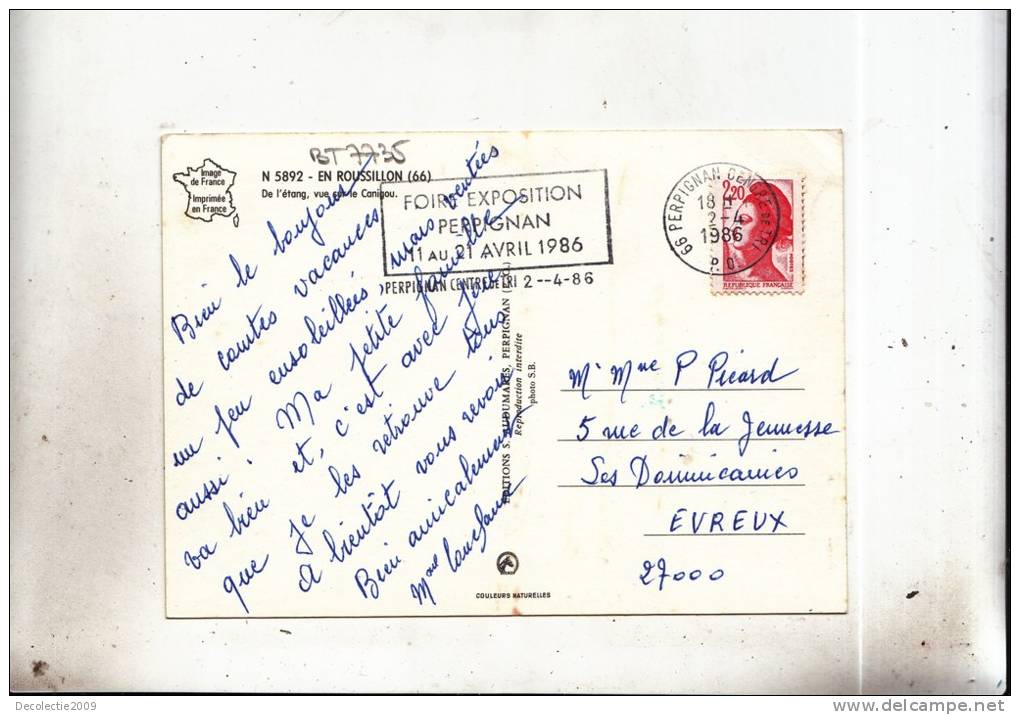 BT 7735
Image
de France
Imprimée
en France
N 5892 - EN ROUSSILLON (66)
De l'étang, vue sur le Canigou.
FOIRE EXPOSITION
PERPIGNAN
11 AU 21 AVRIL 1986
PERPIGNAN CENTRE DE TRI 2--4-86
66 PERPIGNAN CENTRE DE TRI
18 H
2-4
1986
P.O.
2,20
POSTES
REPUBLIQUE FRANÇAISE
Bien le bonjour
de courtes vacances
un peu ensoleillées, mais ventées
aussi! Ma petite famille
va bien et, c'est avec joie
que je les retrouve tous
A bientôt vous revoir
Bien amicalement
Mme
EDITIONS S. AUDUMARES, PERPIGNAN
Reproduction interdite
photo S.B.
Mr Mme P Picard
5 rue de la Jeunesse
Les Dominicaines
EVREUX
27000
COULEURS NATURELLES
Decolectie2009
delcampe.net